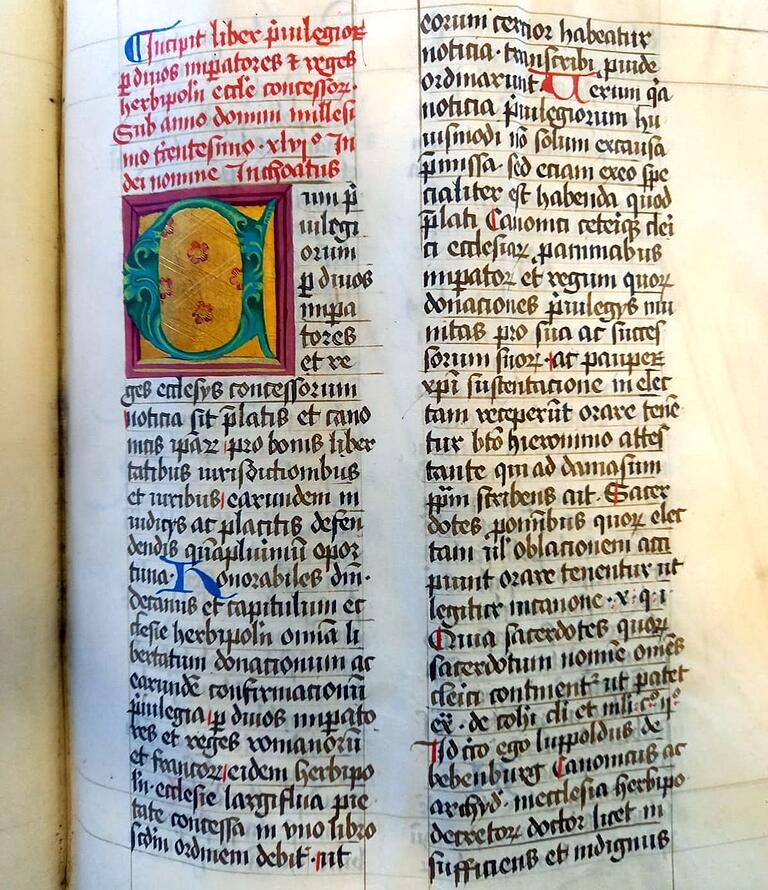 Incipit liber p̄uilegioꝝ
ꝑ diuos imꝑatores ⁊ reges
herbipoln̄ eccl̄e concessoꝝ.
Sub anno domini millesi
mo trentesimo · xlvi° In
dei nomine Inchoatus
Cum p̄
uilegi
orum
ꝑ diuos
impa
tores
et re
ges ecclesijs concessorum
noticia sit p̄latis et cano
nicis ipaꝝ pro bonis liber
tatibus iurisdictionibus
et iuribus earundem in
iudicijs ac placitis defen
dendis quāpluimū opor
tuna· Honorabiles dn̄i·
decanus et capitulum ec
clesie herbipoln̄ omnia li
bertatum donacionum ac
earundē confirmacionū
p̄uilegia ꝑ diuos imꝑato
res et reges romanorū
et francoꝝ eidem herbipo
ln̄· ecclesie largiflua pie
tate concessa in vno libro
scdm̄ ordinem debit̄· ut
eorum cercior habeatur
noticia· transcribi ꝓuide
ordinarunt Uerum qa
noticia p̄uilegiorum hu
iusmodi nō solum excausa
p̄missa· sed eciam exeo spe
cialiter est habenda quod
p̄lati Canonici ceteriqꝫ cleri
ci ecclesiaꝝ, pro animabus
imꝑatoꝝ et regum quoꝝ
donaciones p̄uilegijs mu
nitas pro sua ac succes
sorum suoꝝ· ac pauperꝝ
xpī sustentacione in elec
tam receperūt orare tenē
tur bt̄o hieronimo attes
tante qui ad damasum
pp̄m scribens ait· Sacer
dotes pro omibus quoꝝ elec
tam ul̓ oblacionem acci
piunt orare tenentur ut
legitur in canone · x· q· i·
Quia sacerdotes quoꝝ
sacerdotum nomine om̄es
clerici continent᷑ ut patet
ex̄· de cohi cl̄i et mlī· c° ij°
Id circo ego luppoldus de
bebenburg Canonicus ac
archyd̄· in ecclesia herbipo
decretoꝝ doctor licet in
sufficiens et indignus